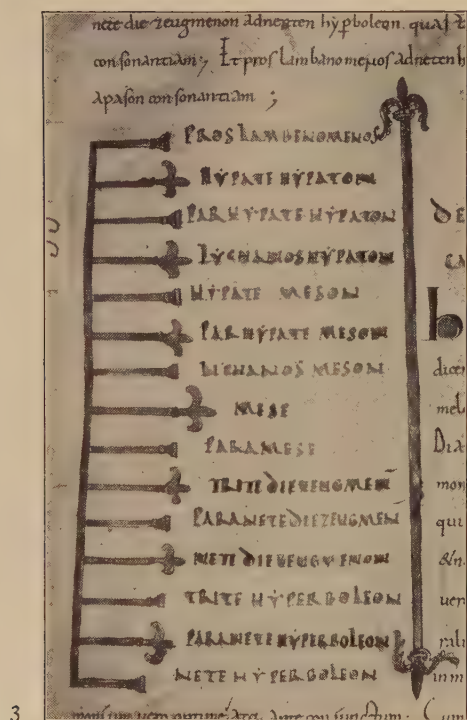 nete die zeugmenon adneten hyperboleon. quasi
consonantiam; Et proslambanomenos adneten h
apason consonantiam ;
PROSLAMBENOMENOS
HYPATE HYPATON
PARHYPATE HYPATON
LYCHANOS HYPATON
HYPATE MESON
PARHYPATE MESON
LICHANOS MESON
MESE
PARAMESE
TRITE DIEZEUGMEN
PARANETE DIEZEUGMEN
NETE DIEZEUGMENON
TRITE HYPERBOLEON
PARANETE HYPERBOLEON
NETE HYPERBOLEON
DE
b
dicer
mel
Dia
mon
qui
uen
inm
3